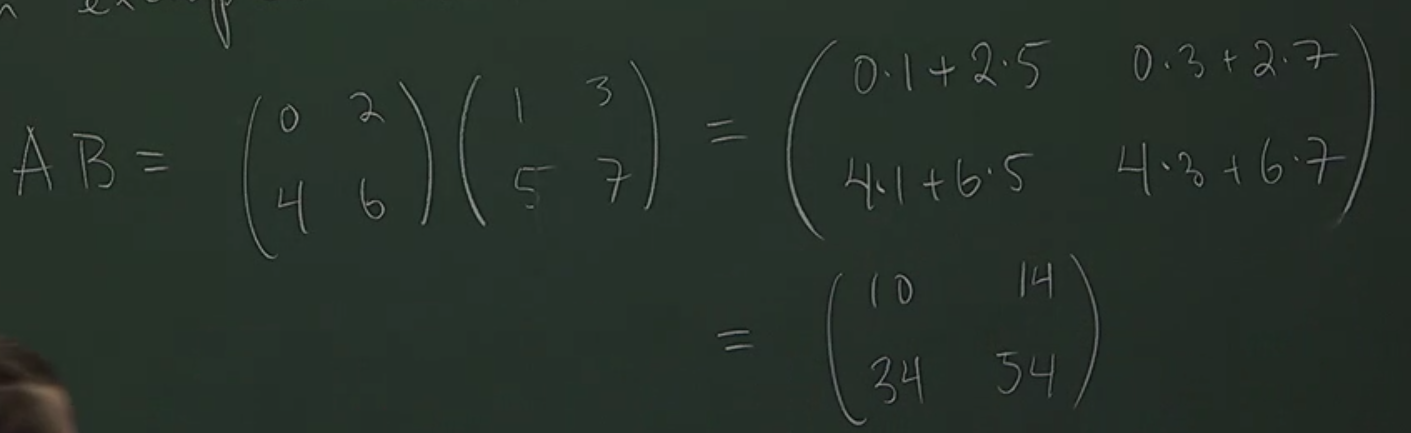 AB = \begin{pmatrix} 0 & 2 \\ 4 & 6 \end{pmatrix} \begin{pmatrix} 1 & 3 \\ 5 & 7 \end{pmatrix} = \begin{pmatrix} 0·1+2·5 & 0·3+2·7 \\ 4·1+6·5 & 4·3+6·7 \end{pmatrix}
= \begin{pmatrix} 10 & 14 \\ 34 & 54 \end{pmatrix}